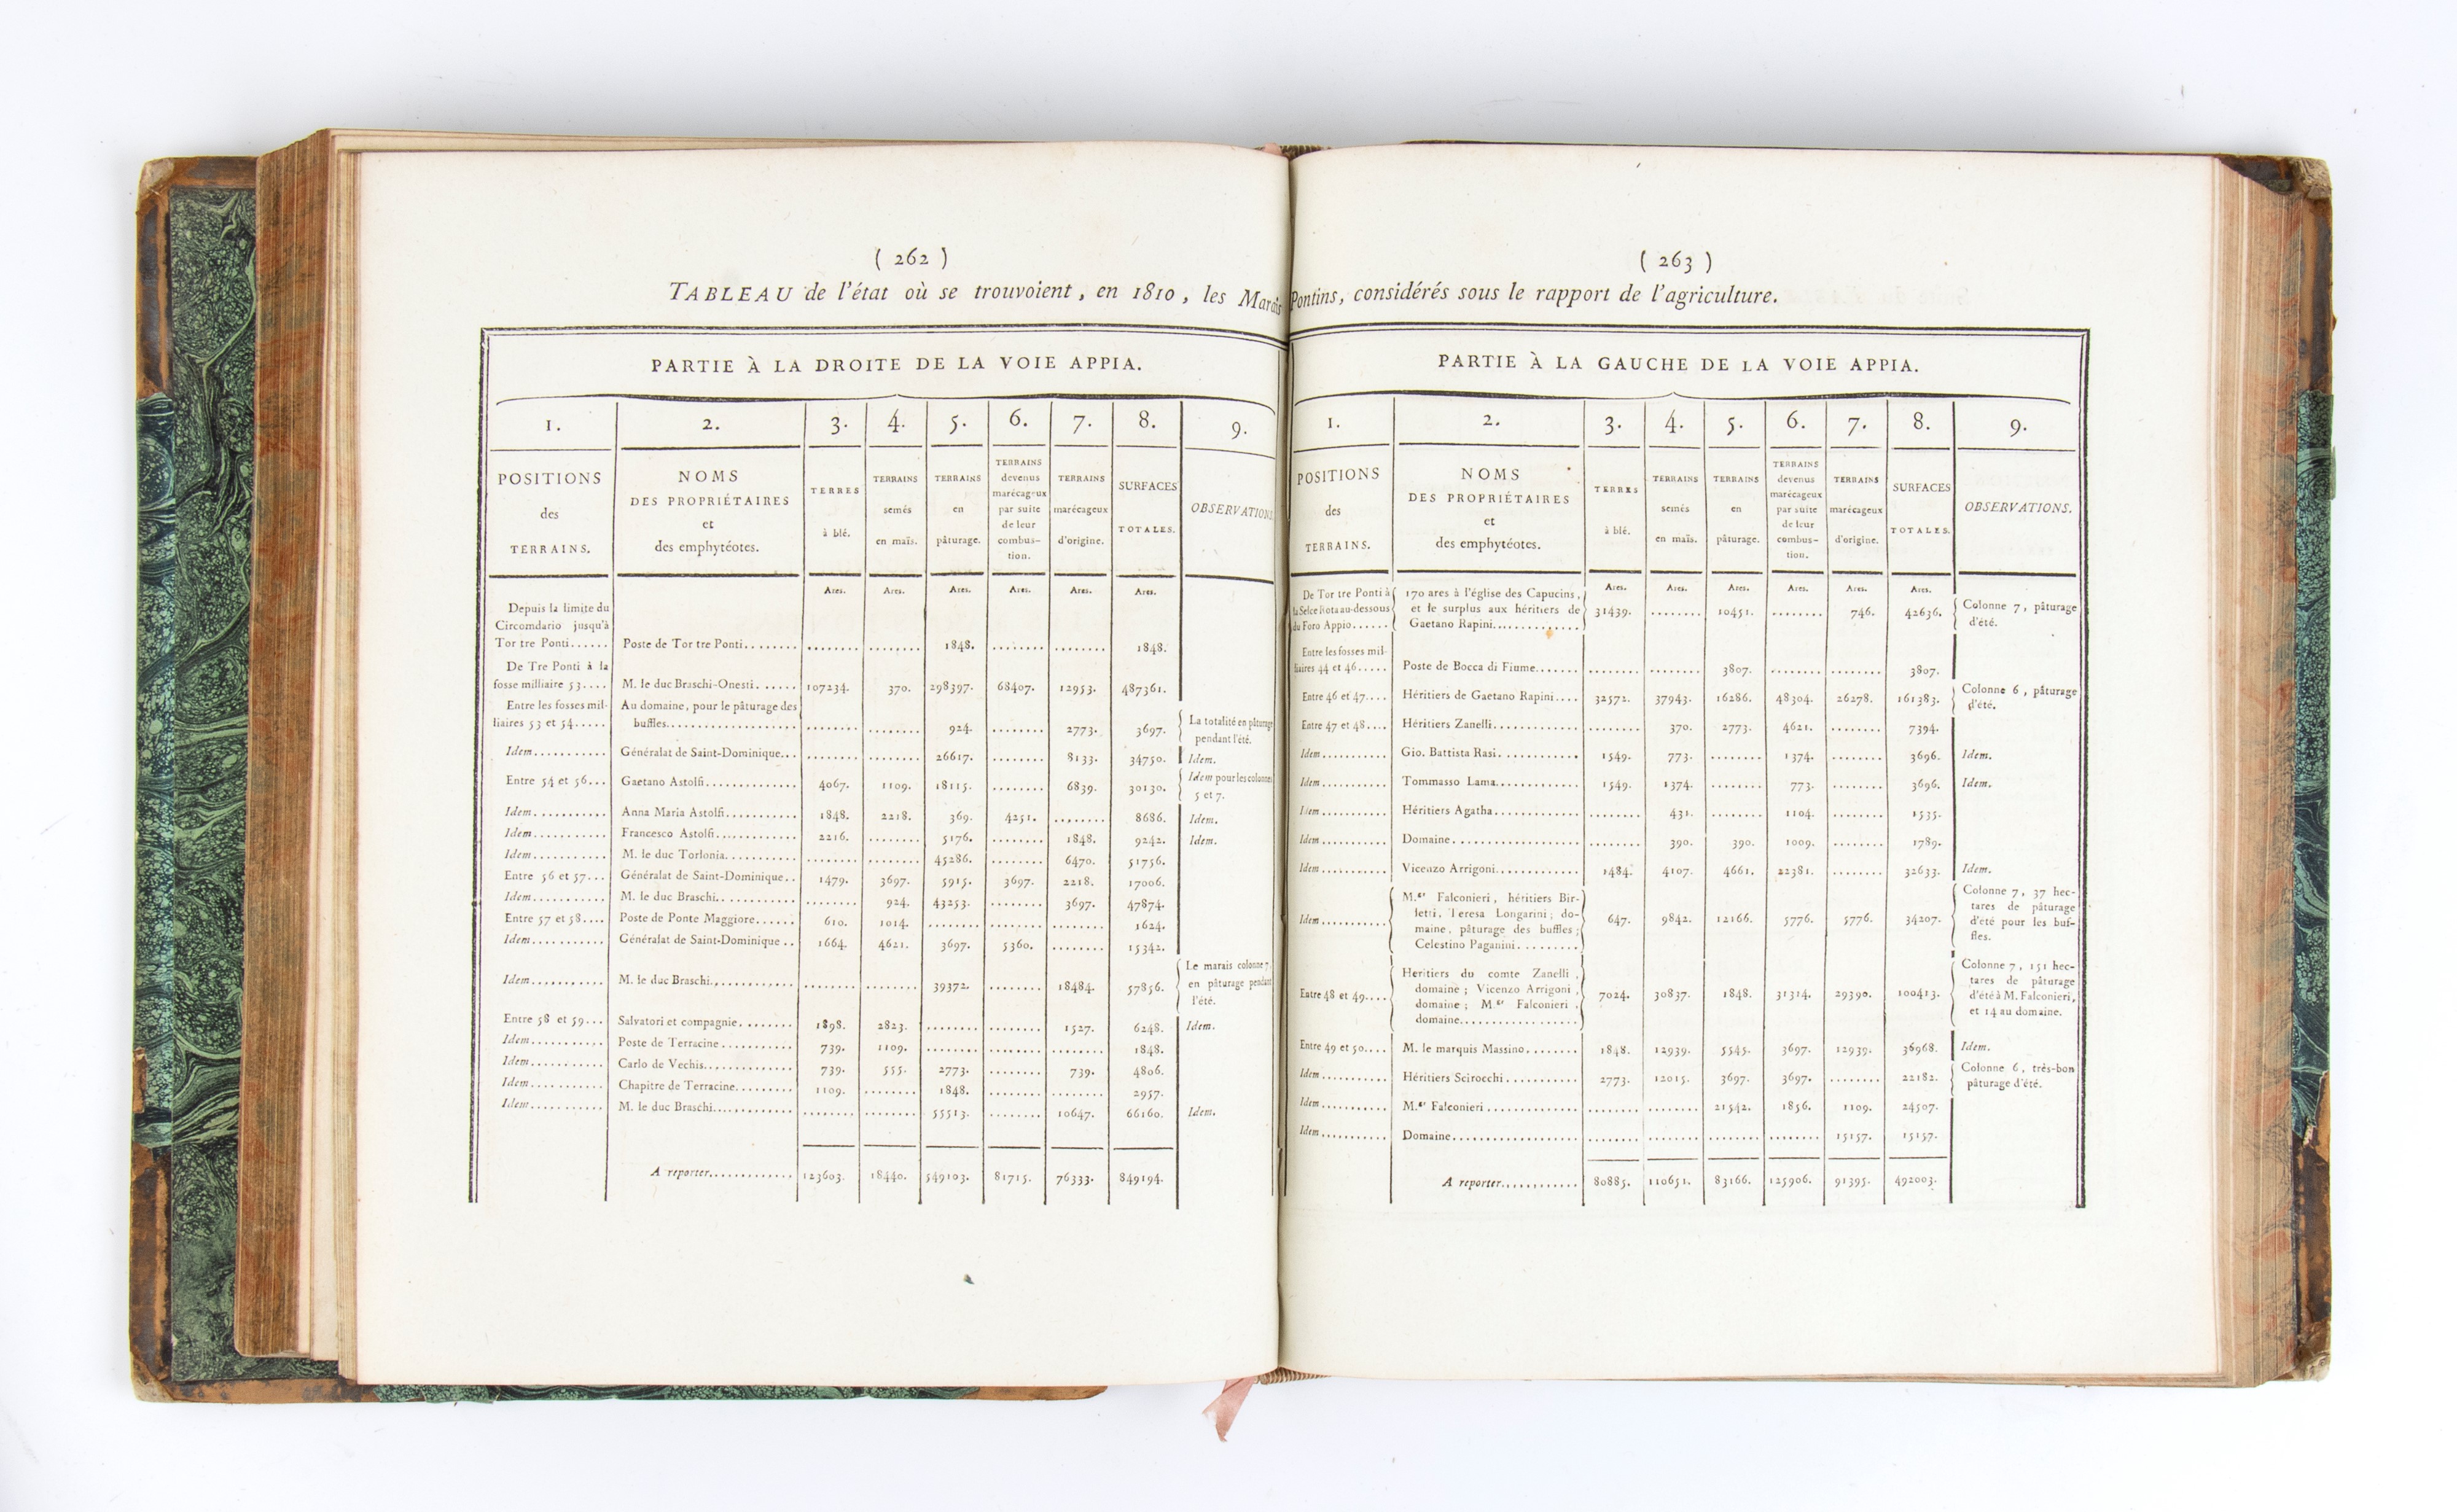 ( 262 )
TABLEAU de l'état où se trouvoient, en 1810, les Marais
PARTIE À LA DROITE DE LA VOIE APPIA.
1. 2. 3. 4. 5. 6. 7. 8. 9.
POSITIONS
des
TERRAINS.
NOMS
DES PROPRIÉTAIRES
et
des emphytéotes.
TERRES
à blé.
TERRAINS
semés
en maïs.
TERRAINS
en
pâturage.
TERRAINS
devenus
marécageux
par suite
de leur
combus-
tion.
TERRAINS
marécageux
d'origine.
SURFACES
TOTALES.
OBSERVATIONS.
Ares. Ares. Ares. Ares. Ares. Ares.
Depuis la limite du
Circomdario jusqu'à
Tor tre Ponti...... Poste de Tor tre Ponti........ ........ ........ 1848. ........ ........ 1848.
De Tre Ponti à la
fosse milliaire 53.... M. le duc Braschi-Onesti...... 107234. 370. 298397. 68407. 12953. 487361.
Entre les fosses mil- Au domaine, pour le pâturage des
liaires 53 et 54..... buffles.................... ........ ........ 924. ........ 2773. 3697. La totalité en pâturage
pendant l'été.
Idem........... Généralat de Saint-Dominique... ........ ........ 26617. ........ 8133. 34750. Idem.
Entre 54 et 56... Gaetano Astolfi.............. 4067. 1109. 18115. ........ 6839. 30130. Idem pour les colonnes
5 et 7.
Idem........... Anna Maria Astolfi........... 1848. 2218. 369. 4251. ........ 8686. Idem.
Idem........... Francesco Astolfi............ 2216. ........ 5176. ........ 1848. 9242. Idem.
Idem........... M. le duc Torlonia........... ........ ........ 45286. ........ 6470. 51756.
Entre 56 et 57... Généralat de Saint-Dominique.. 1479. 3697. 5915. 3697. 2218. 17006.
Idem........... M. le duc Braschi............ ........ 924. 43253. ........ 3697. 47874.
Entre 57 et 58.... Poste de Ponte Maggiore...... 610. 1014. ........ ........ ........ 1624.
Idem........... Généralat de Saint-Dominique.. 1664. 4621. 3697. 5360. ........ 15342.
Idem........... M. le duc Braschi............ ........ ........ 39372. ........ 18484. 57856. Le marais colonne 7,
en pâturage pendant
l'été.
Entre 58 et 59... Salvatori et compagnie........ 1898. 2823. ........ ........ 1527. 6248. Idem.
Idem........... Poste de Terracine........... 739. 1109. ........ ........ ........ 1848.
Idem........... Carlo de Vechis.............. 739. 555. 2773. ........ 739. 4806.
Idem........... Chapitre de Terracine......... 1109. ........ 1848. ........ ........ 2957.
Idem........... M. le duc Braschi............ ........ ........ 55513. ........ 10647. 66160. Idem.
A reporter............ 123603. 18440. 549103. 81715. 76333. 849194.
( 263 )
Pontins, considérés sous le rapport de l'agriculture.
PARTIE À LA GAUCHE DE LA VOIE APPIA.
1. 2. 3. 4. 5. 6. 7. 8. 9.
POSITIONS
des
TERRAINS.
NOMS
DES PROPRIÉTAIRES
et
des emphytéotes.
TERRES
à blé.
TERRAINS
semés
en maïs.
TERRAINS
en
pâturage.
TERRAINS
devenus
marécageux
par suite
de leur
combus-
tion.
TERRAINS
marécageux
d'origine.
SURFACES
TOTALES.
OBSERVATIONS.
Ares. Ares. Ares. Ares. Ares. Ares.
De Tor tre Ponti à 170 ares à l'église des Capucins,
la Selce Rota au-dessous et le surplus aux héritiers de 31439. ........ 10451. ........ 746. 42636. Colonne 7, pâturage
du Foro Appio...... Gaetano Rapini............. d'été.
Entre les fosses mil-
liaires 44 et 46..... Poste de Bocca di Fiume....... ........ ........ 3807. ........ ........ 3807.
Entre 46 et 47.... Héritiers de Gaetano Rapini.... 32572. 37943. 16286. 48304. 26278. 161383. Colonne 6, pâturage
d'été.
Entre 47 et 48.... Héritiers Zanelli............. ........ 370. 2773. 4621. ........ 7394.
Idem........... Gio. Battista Rasi............ 1549. 773. ........ 1374. ........ 3696. Idem.
Idem........... Tommasso Lama............. 1549. 1374. ........ 773. ........ 3696. Idem.
Idem........... Héritiers Agatha............. ........ 431. ........ 1104. ........ 1535.
Idem........... Domaine.................. ........ 390. 390. 1009. ........ 1789.
Idem........... Vicenzo Arrigoni............. 1484. 4107. 4661. 22381. ........ 32633. Idem.
Idem........... M.gr Falconieri, héritiers Bir-
letti, Teresa Longarini; do-
maine, pâturage des buffles;
Celestino Paganini......... 647. 9842. 12166. 5776. 5776. 34207. Colonne 7, 37 hec-
tares de pâturage
d'été pour les buf-
fles.
Entre 48 et 49.... Heritiers du comte Zanelli,
domaine; Vicenzo Arrigoni,
domaine; M.gr Falconieri,
domaine.................. 7024. 30837. 1848. 31314. 29390. 100413. Colonne 7, 151 hec-
tares de pâturage
d'été à M. Falconieri,
et 14 au domaine.
Entre 49 et 50.... M. le marquis Massino........ 1848. 12939. 5545. 3697. 12939. 36968. Idem.
Idem........... Héritiers Scirocchi........... 2773. 12015. 3697. 3697. ........ 22182. Colonne 6, très-bon
pâturage d'été.
Idem........... M.gr Falconieri.............. ........ ........ 21542. 1856. 1109. 24507.
Idem........... Domaine.................. ........ ........ ........ ........ 15157. 15157.
A reporter............ 80885. 110651. 83166. 125906. 91395. 492003.